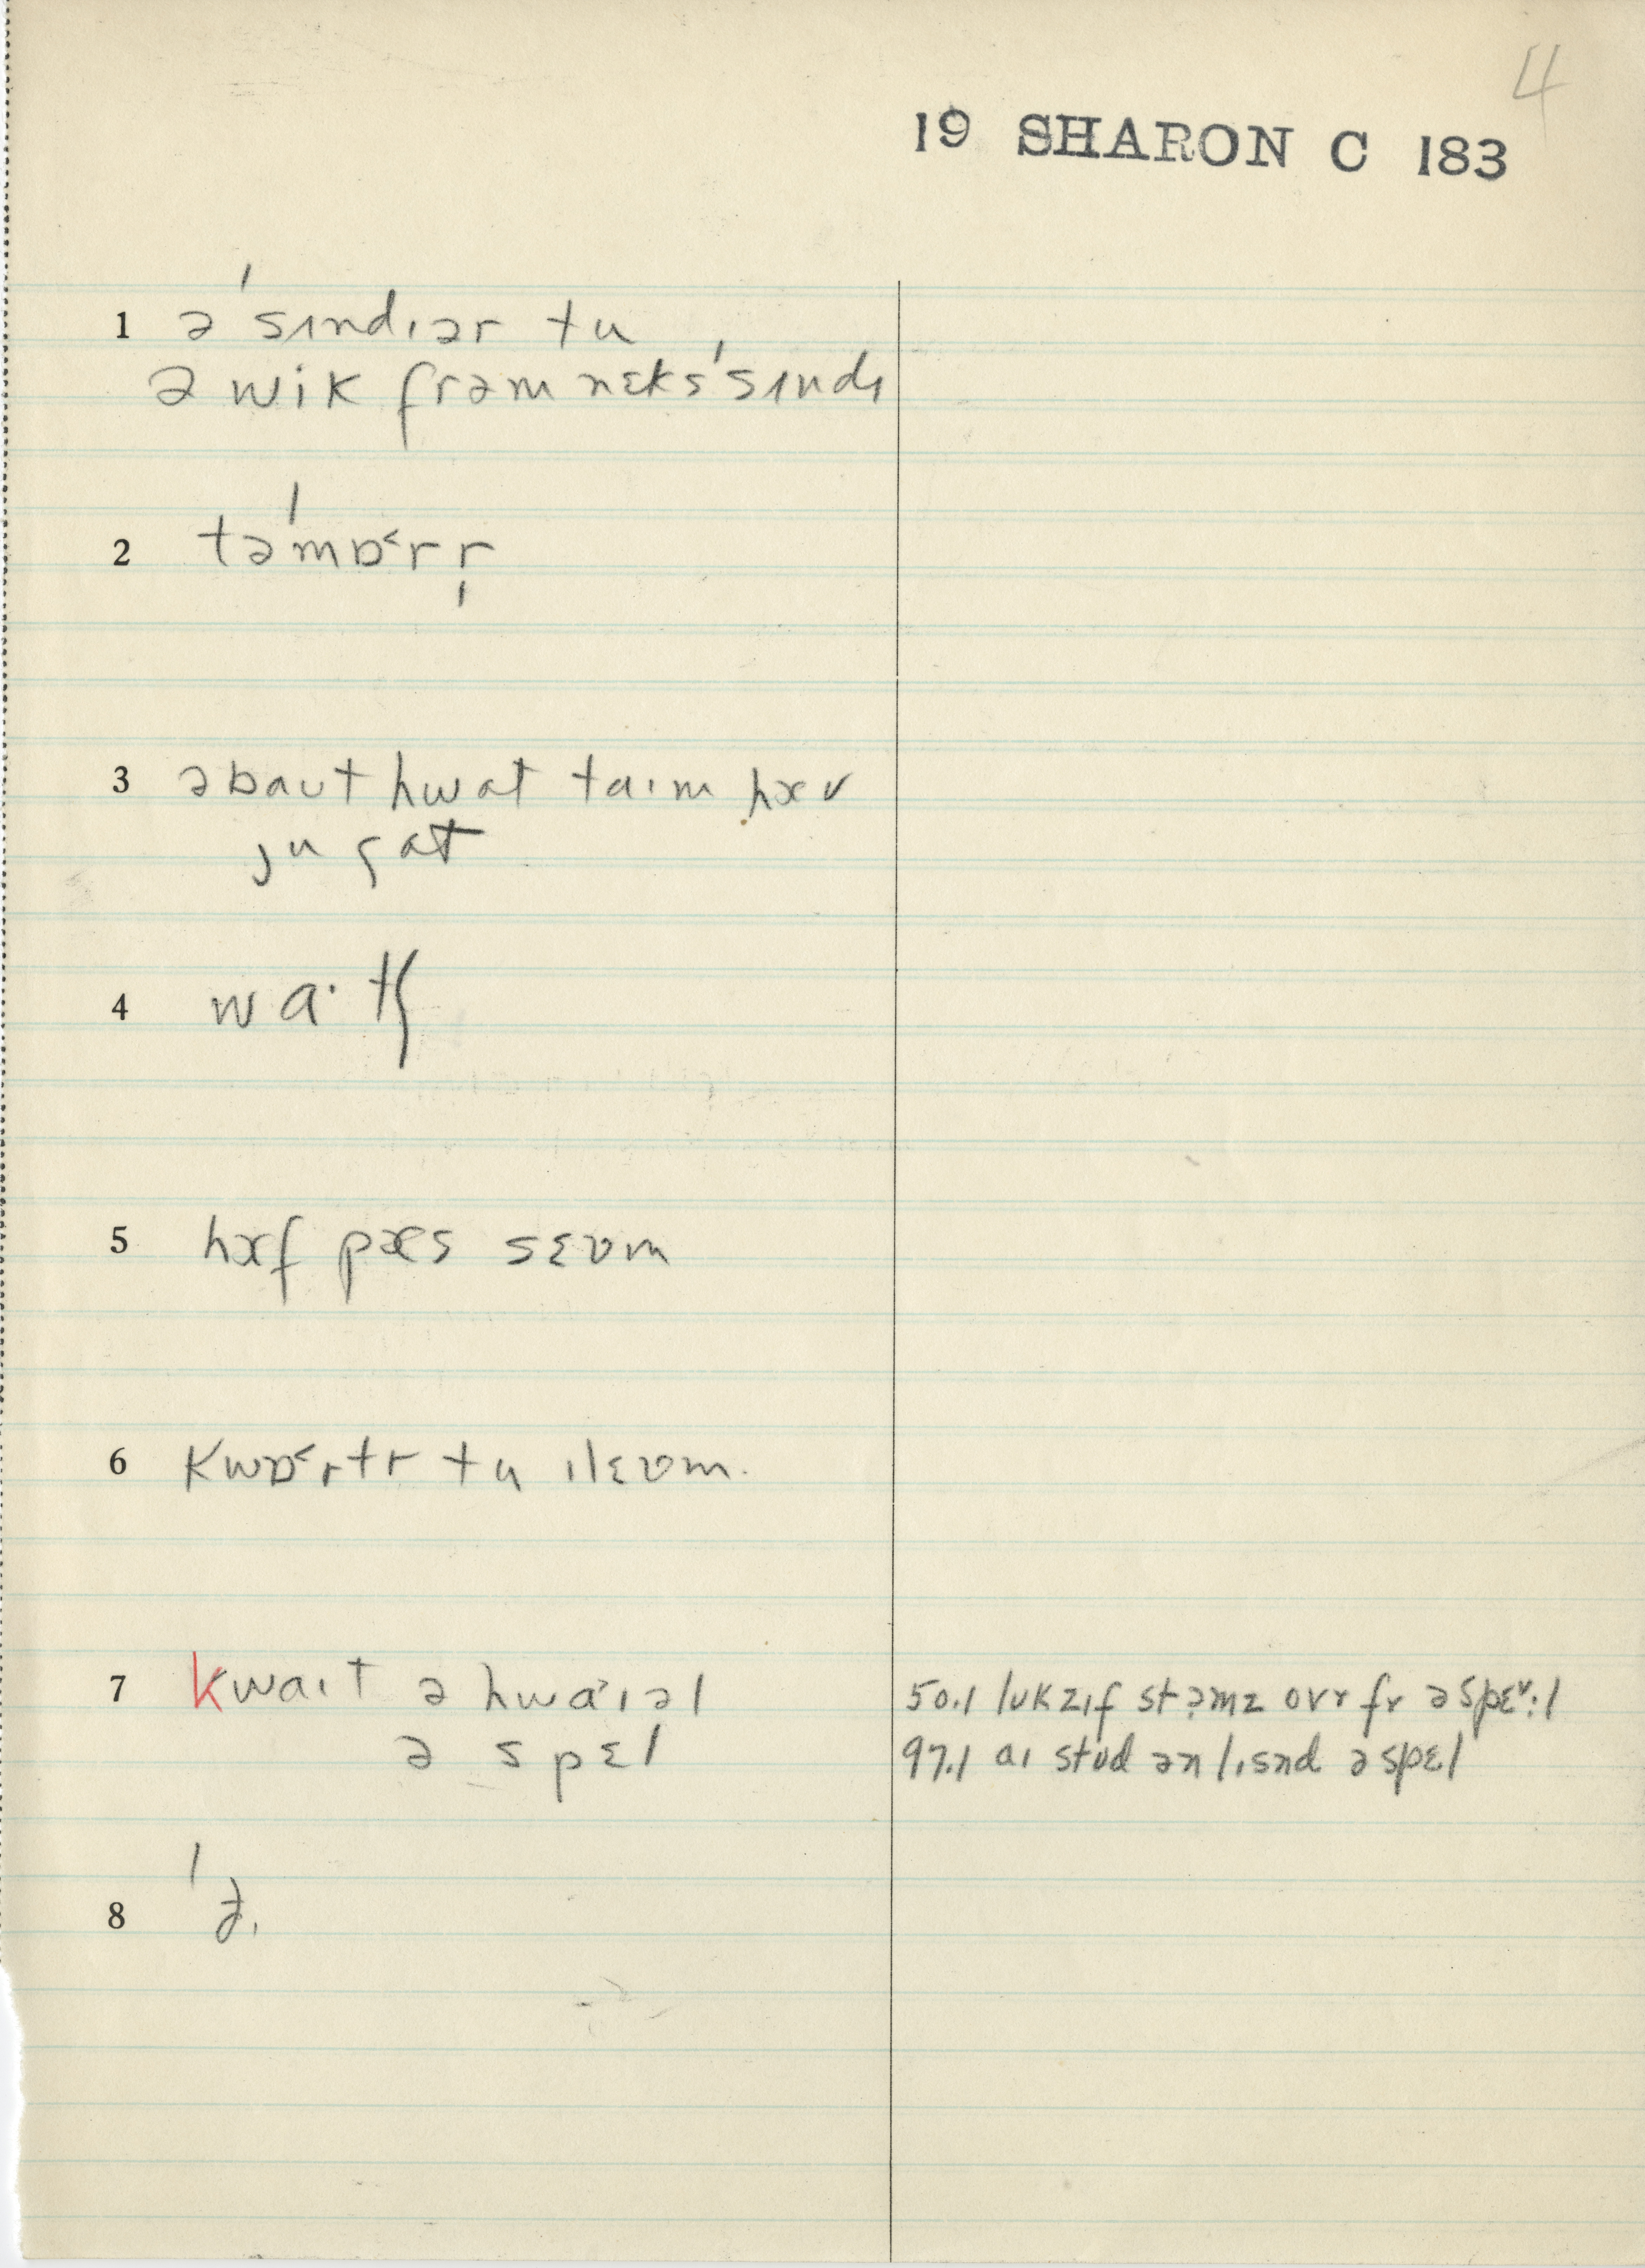 4
19 SHARON C 183
1 ə ˈsɪndɪər tu
ə wik frəm nɛks ˈsɪndɪ
2 təˈmɒ˂rr̩
3 əbaʊt hwat taɪm hæv
ju gat
4 wa·tʃ
5 hæf pæs sɛvm
6 kwɒ˂rtr tu ɪlɛvm.
7 kwaɪt ə hwa˃ɪəl
ə spɛl
50.1 lʊkz ɪf st ə̣mz ovr fr ə spɛ˅·l
97.1 aɪ stʊd ən lɪsnd ə spɛl
8